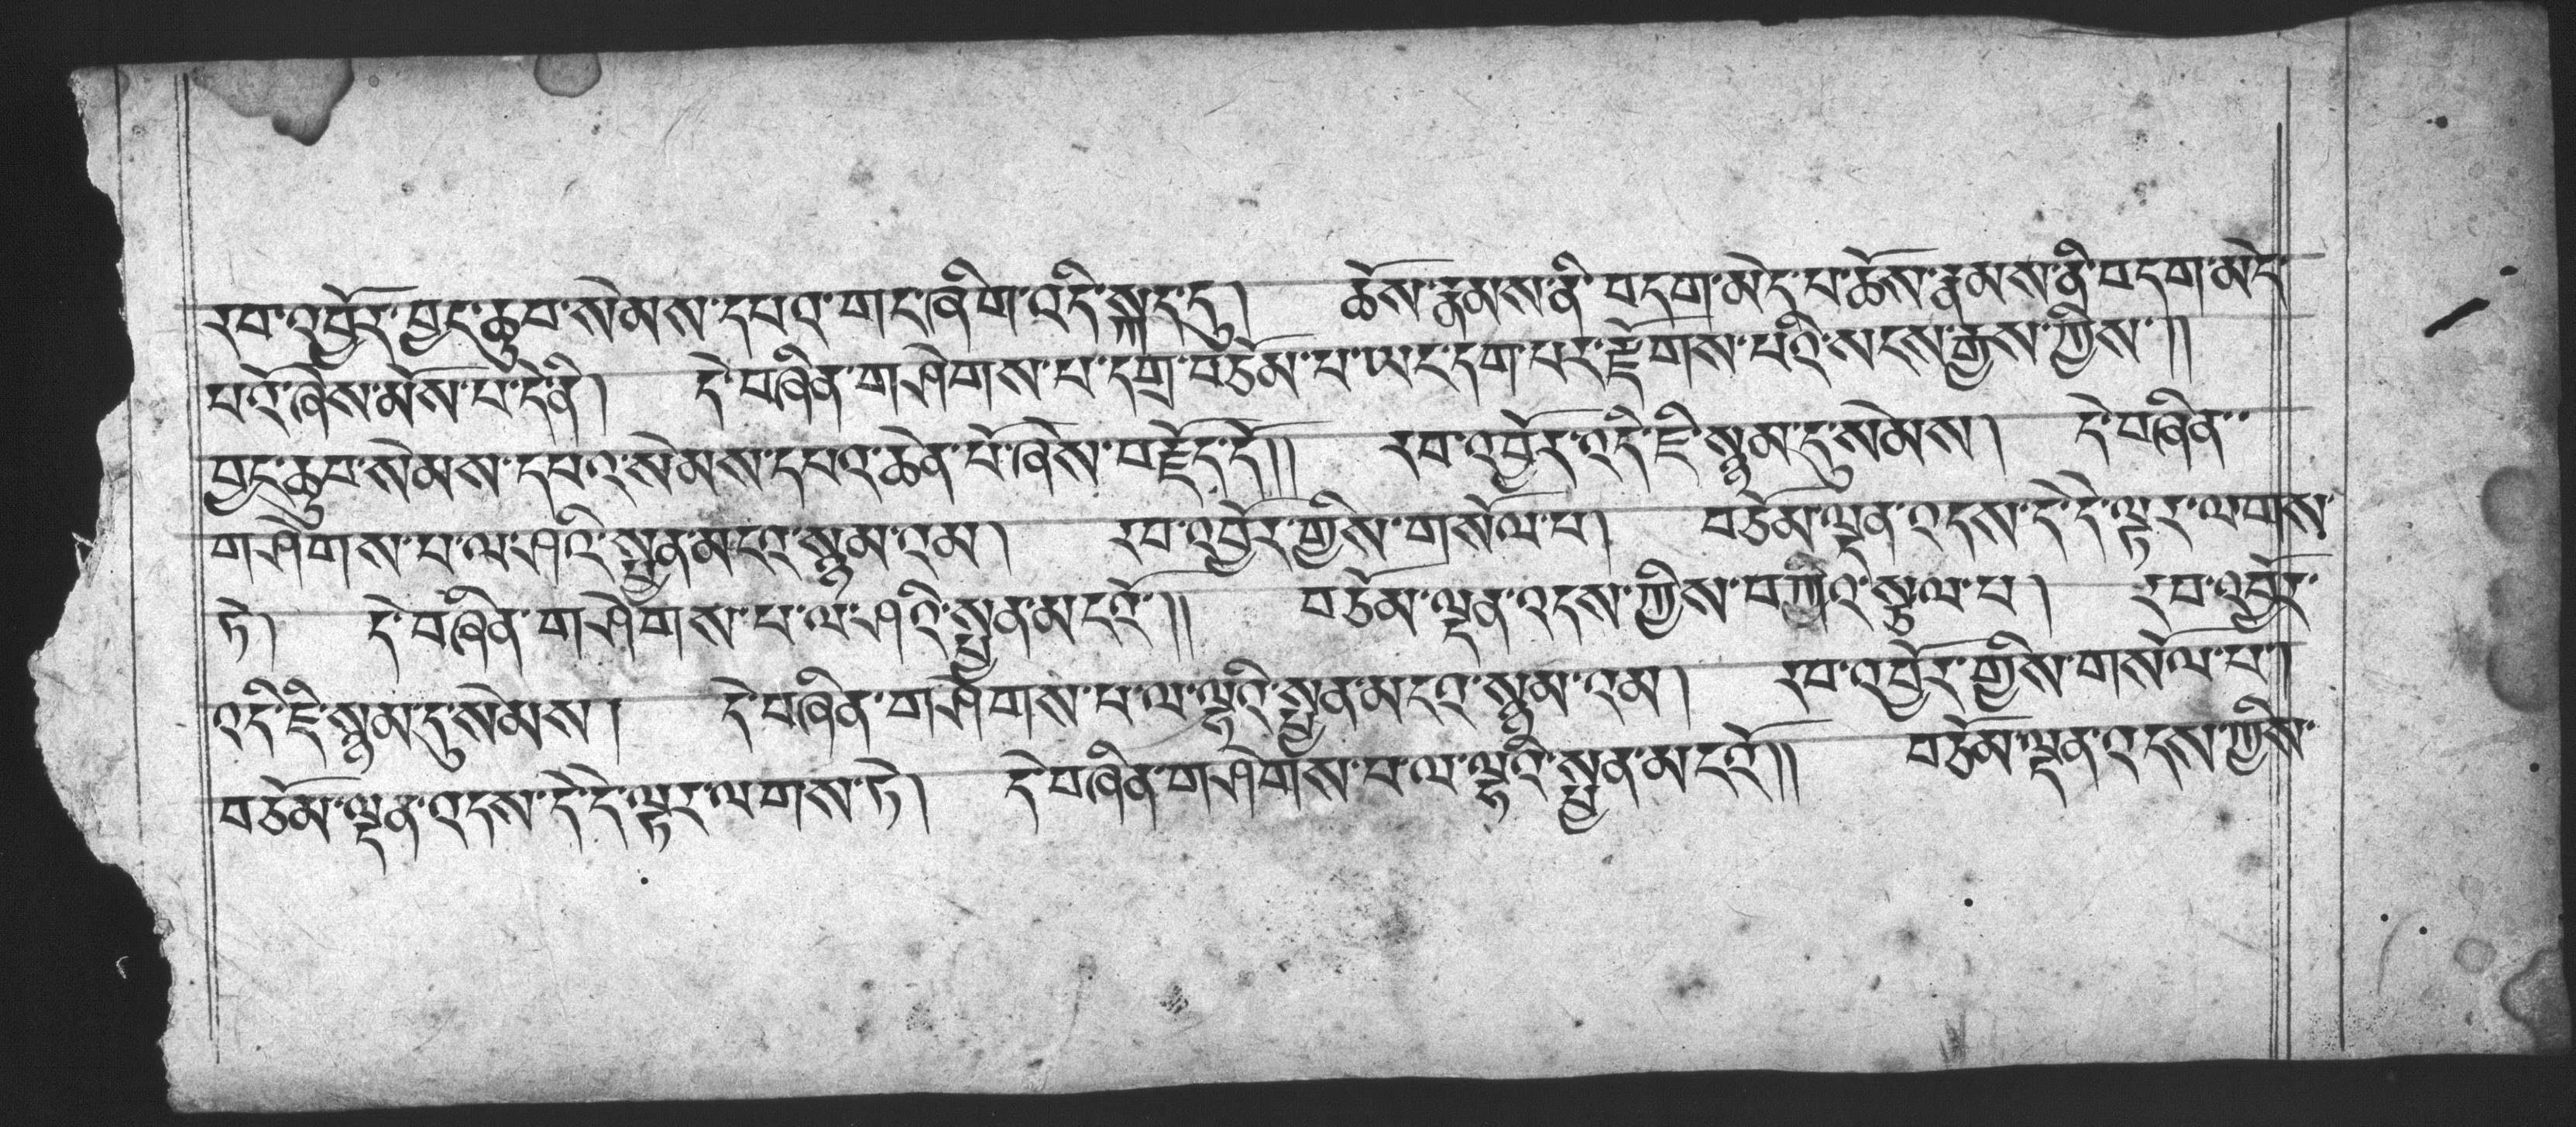 རབ་འབྱོར་བྱང་ཆུབ་སེམས་དཔའ་གང་ཞིག་འདི་སྐད་དུ། ཆོས་རྣམས་ནི་བདག་མེད་པ་ཆོས་རྣམས་ནི་བདག་མེད་
པའོ་ཞེས་མོས་པ་དེ་ནི། དེ་བཞིན་གཤེགས་པ་དགྲ་བཅོམ་པ་ཡང་དག་པར་རྫོགས་པའི་སངས་རྒྱས་ཀྱིས་།།
བྱང་ཆུབ་སེམས་དཔའ་སེམས་དཔའ་ཆེན་པོ་ཞེས་བརྗོད་དོ།། རབ་འབྱོར་འདི་ཇི་སྙམ་དུ་སེམས། དེ་བཞིན་་
གཤེགས་པ་ལ་ཤའི་སྤྱན་མངའ་སྙམ་འམ། རབ་འབྱོར་གྱིས་གསོལ་པ། བཅོམ་ལྡན་འདས་དེ་དེ་ལྟར་ལགས་
ཏེ། དེ་བཞིན་གཤེགས་པ་ལ་ཤའི་སྤྱན་མངའོ་།། བཅོམ་ལྡན་འདས་ཀྱིས་བཀའ་སྩལ་པ། རབ་འབྱོར་
འདི་ཇི་སྙམ་དུ་སེམས། དེ་བཞིན་གཤེགས་པ་ལ་ལྷའི་སྤྱན་མངའ་སྙམ་འམ། རབ་འབྱོར་གྱིས་གསོལ་པ་།
བཅོམ་ལྡན་འདས་དེ་དེ་ལྟར་ལགས་ཏེ། དེ་བཞིན་གཤེགས་པ་ལ་ལྷའི་སྤྱན་མངའོ།། བཅོམ་ལྡན་འདས་ཀྱིས་